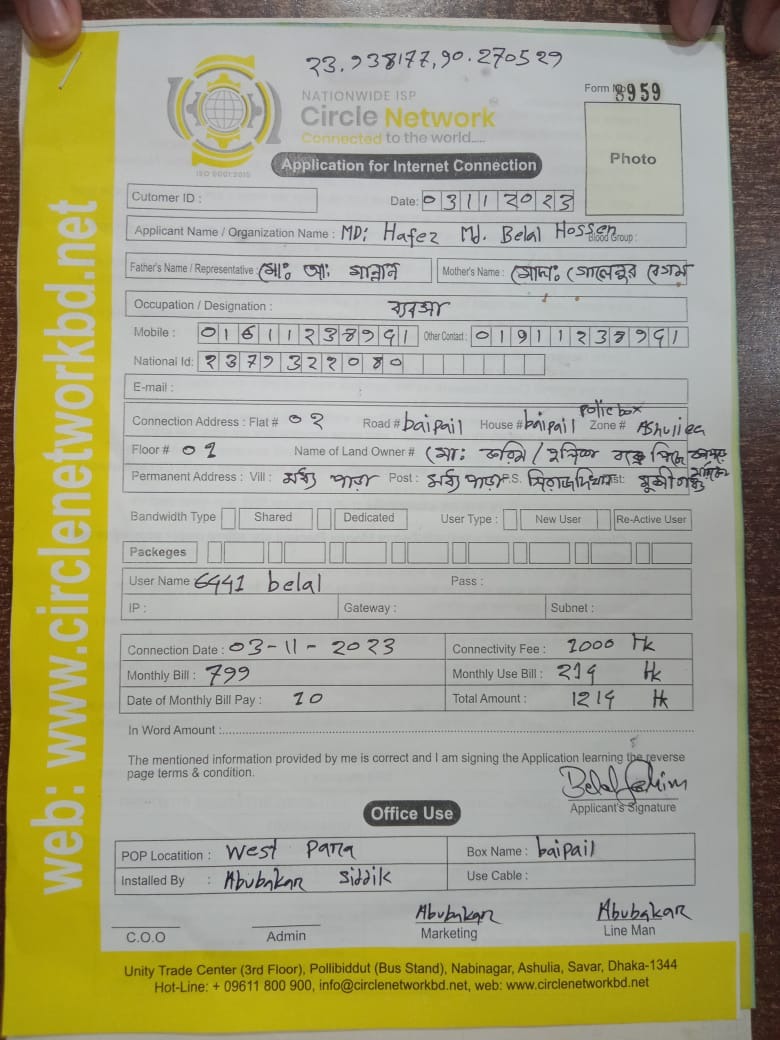 23.938177,90.270529
NATIONWIDE ISP
Circle Network
Connected to the world.....
ISO 9001:2015
Form No 8959
Application for Internet Connection
Photo
Cutomer ID :
Date: 03112023
Applicant Name / Organization Name : MD: Hafez Md. Belal Hossen
Blood Group :
Father's Name / Representative : মোঃ আঃ মান্নান Mother's Name : মোসাঃ বেগম
Occupation / Designation : ব্যবসা
Mobile : Other Contact :
National Id: 2379322080
E-mail :
Connection Address : Flat # 02 Road # baipail House # baipail police box Zone # Ashuliea
Floor # 01 Name of Land Owner # মোঃ
Permanent Address : Vill : মধ্য পাড়া Post : মধ্য পাড়া P.S. সিরাজদিখান Dist: মুন্সীগঞ্জ
Bandwidth Type Shared Dedicated User Type : New User Re-Active User
Packeges
User Name belal Pass :
IP : Gateway : Subnet :
Connection Date : 03-11-2023 Connectivity Fee : 1000 Tk
Monthly Bill : 799 Monthly Use Bill : 214 Tk
Date of Monthly Bill Pay : 10 Total Amount : 1214 Tk
In Word Amount :
The mentioned information provided by me is correct and I am signing the Application learning the reverse
page terms & condition.
Applicant's Signature
Office Use
POP Locatition : West Para Box Name : baipail
Installed By : Abubakar Siddik Use Cable :
Abubakar Abubakar
C.O.O Admin Marketing Line Man
Unity Trade Center (3rd Floor), Pollibiddut (Bus Stand), Nabinagar, Ashulia, Savar, Dhaka-1344
Hot-Line: + 09611 800 900, info@circlenetworkbd.net, web: www.circlenetworkbd.net
web: www.circlenetworkbd.net